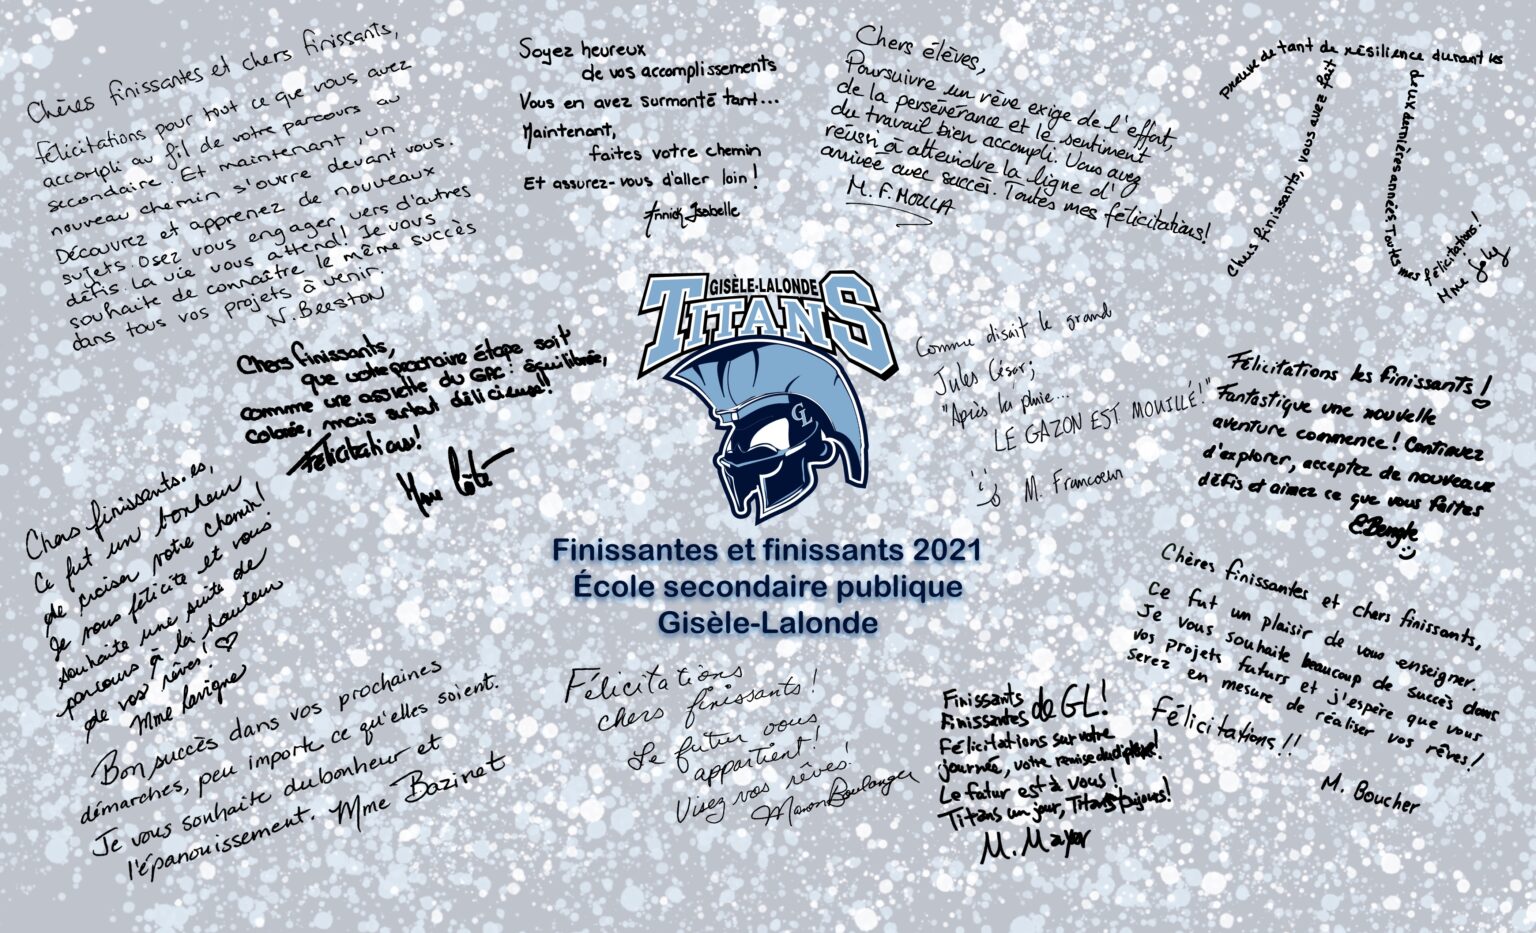 Chères finissantes et chers finissants,
félicitations pour tout ce que vous avez
accompli au fil de votre parcours au
secondaire. Et maintenant, un
nouveau chemin s'ouvre devant vous.
Découvrez et apprenez de nouveaux
sujets. Osez vous engager vers d'autres
défis. La vie vous attend! Je vous
souhaite de connaître le même succès
dans tous vos projets à venir.
N. Beeston
Soyez heureux
de vos accomplissements
Vous en avez surmonté tant...
Maintenant,
faites votre chemin
Et assurez-vous d'aller loin!
Annick Isabelle
Chers élèves,
Poursuivre un rêve exige de l'effort,
de la persévérance et le sentiment
du travail bien accompli. Vous avez
réussi à atteindre la ligne d'
arrivée avec succès. Toutes mes félicitations!
M. F. MOULLA
Chers finissants, vous avez fait
preuve de tant de résilience durant les
deux dernières années. Toutes
mes félicitations!
Mme Joly
GISÈLE-LALONDE
TITANS
GL
Chers finissants,
que votre prochaine étape soit
comme une assiette du GAC: équilibrée,
colorée, mais surtout délicieuse!!
Félicitations!
Mme Côté
Comme disait le grand
Jules César;
"Après la pluie...
LE GAZON EST MOUILLÉ!"
M. Francoeur
Félicitations les finissants!
Fantastique une nouvelle
aventure commence! Continuez
d'explorer, acceptez de nouveaux
défis et aimez ce que vous faites
E.Bengle
Chers finissants.es,
Ce fut un bonheur
de croiser votre chemin!
Je vous félicite et vous
souhaite une suite de
parcours à la hauteur
de vos rêves!
Mme Lavigne
Finissantes et finissants 2021
École secondaire publique
Gisèle-Lalonde
Chères finissantes et chers finissants,
Ce fut un plaisir de vous enseigner.
Je vous souhaite beaucoup de succès dans
vos projets futurs et j'espère que vous
serez en mesure de réaliser vos rêves!
Félicitations!!
M. Boucher
Bon succès dans vos prochaines
démarches, peu importe ce qu'elles soient.
Je vous souhaite du bonheur et
l'épanouissement. Mme Bazinet
Félicitations
chers finissants!
Le futur vous
appartient!
Visez vos rêves!
Manon Boulanger
Finissants
Finissantes de GL!
Félicitations sur votre
journée, votre remise du diplôme!
Le futur est à vous!
Titans un jour, Titans toujours!
M. Mayer